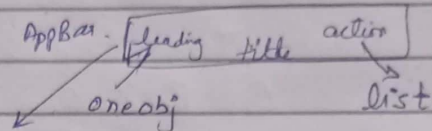 AppBar. leading title action
one obj list